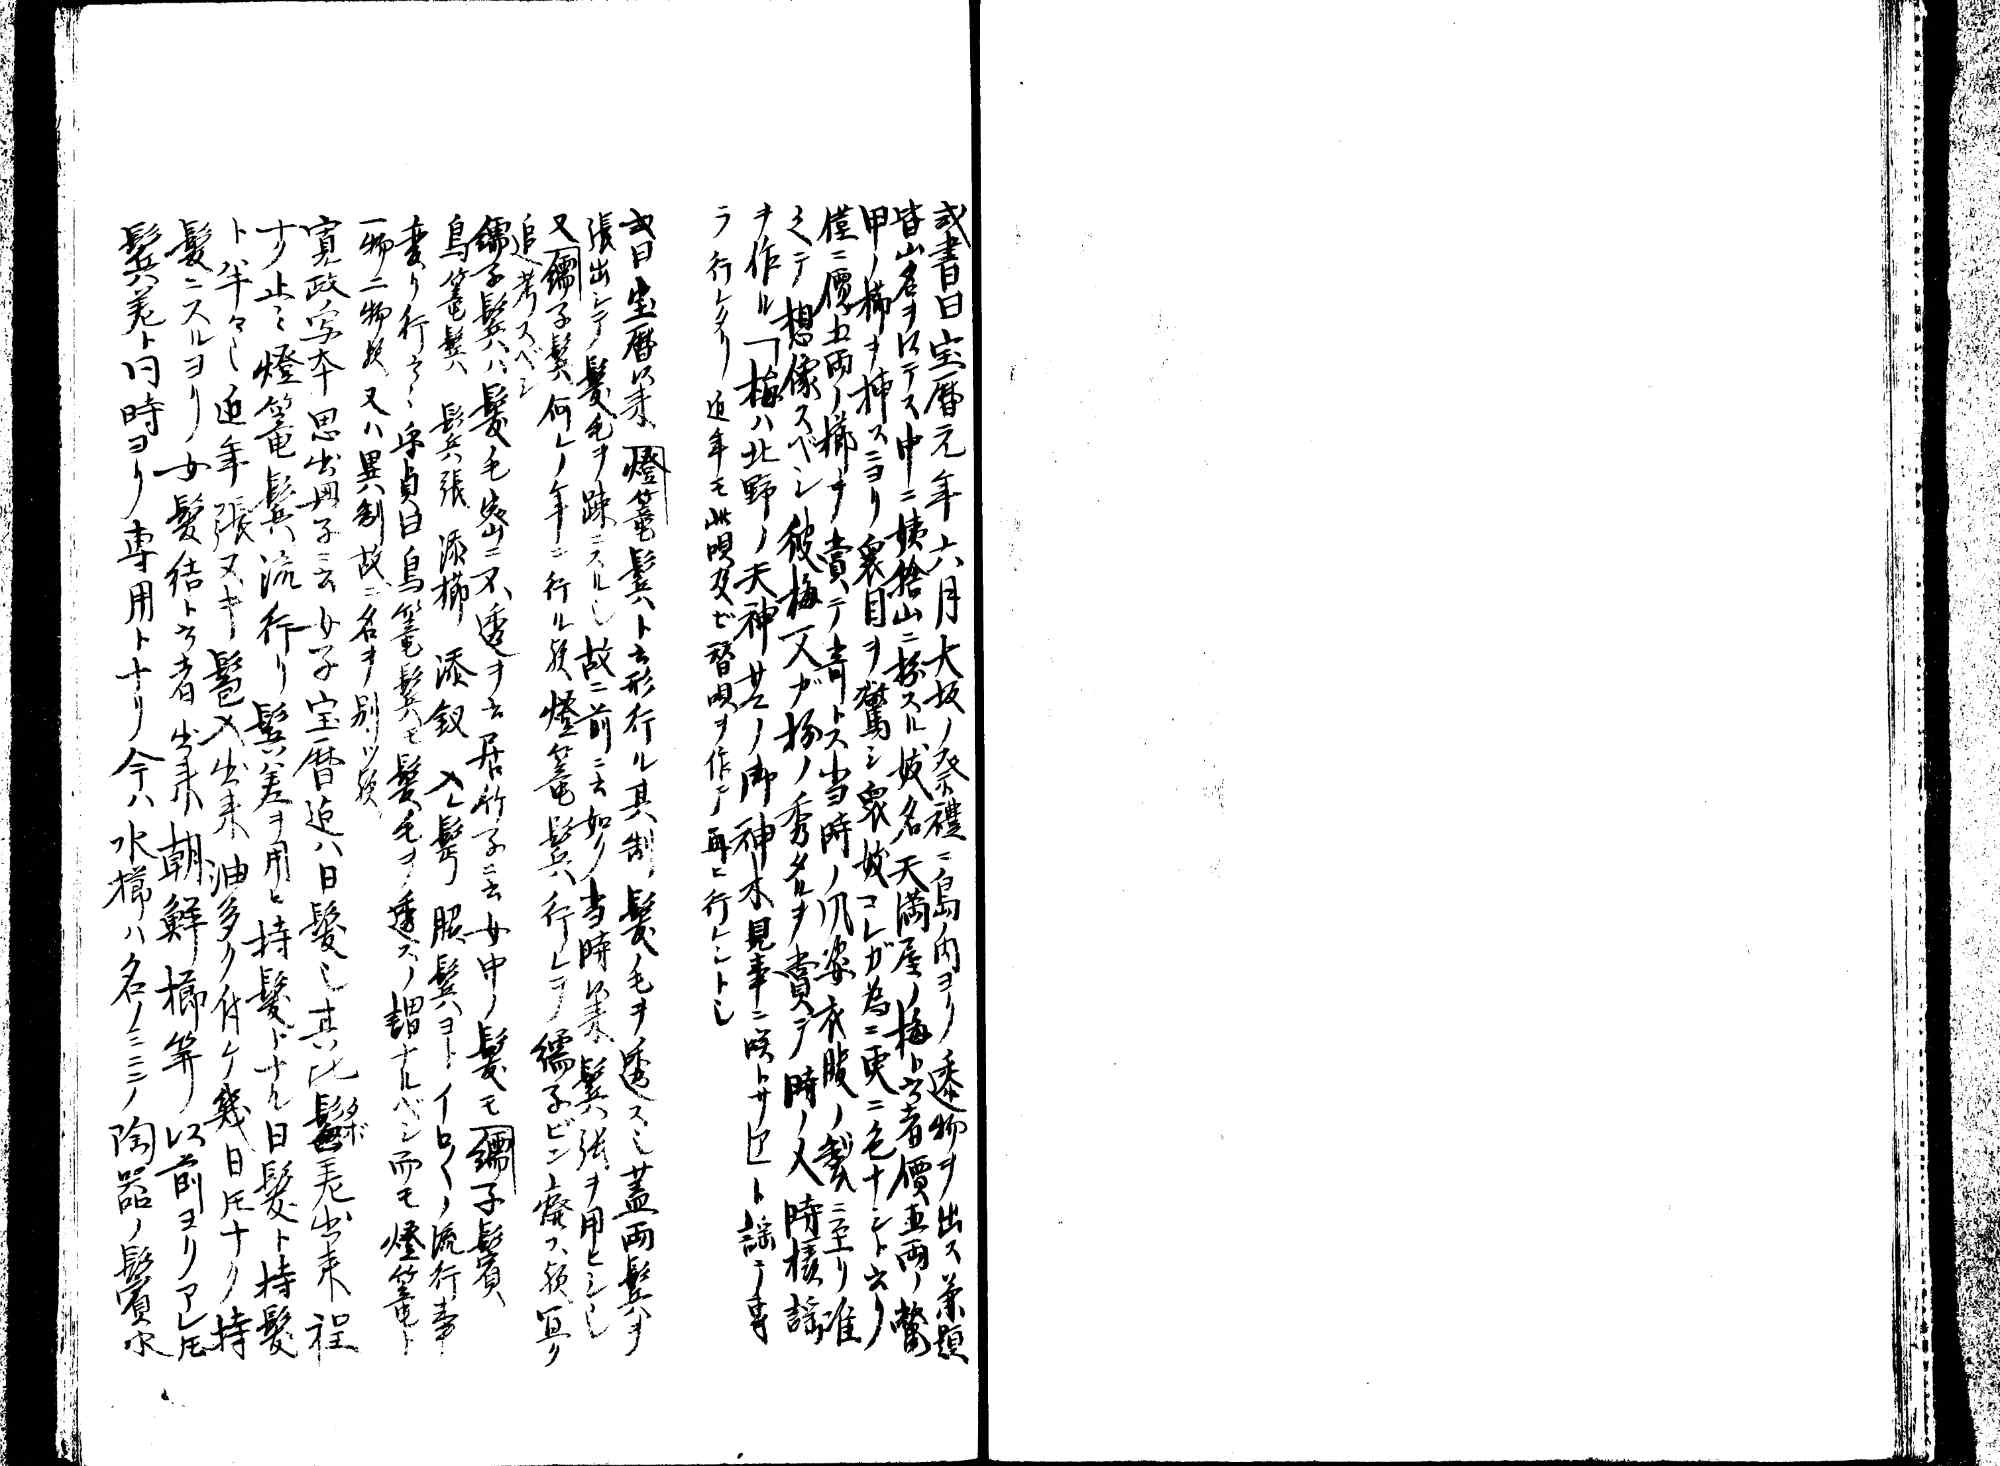 或書曰宝暦元年六月大坂ノ祭禮ニ島ノ内ヨリ邌物ヲ出ス兼題
皆山名ヲ以テス中ニ姨捨山ニ扮スル妓名天満屋ノ梅ト云者價五両ノ鼈
甲ノ櫛ヲ挿スニヨリ衆目ヲ驚シ衆妓コレガ為ニ更ニ色ナシト云リ
僅ニ價五両ノ櫛ヲ賞テ奇トス当時ノ風姿衣服ノ製ニ至リ准
ヘテ想像スベシ彼梅一人ガ扮ノ秀タルヲ賞デ時ノ人時様謡
ヲ作ル「梅ハ北野ノ天神サンノ御神木見事ニ咲トサ」ト謡テ専
ラ行レタリ近年モ此唄及ビ替唄ヲ作テ再ヒ行レントシ
或曰宝暦以来燈籠鬢ト云形行ル其制髪ノ毛ヲ透ス也蓋両鬢ヲ
張出シテ髪毛ヲ疎ニスル也故ニ前ニ云如ク当時以来鬢張ヲ用ヒシ也
又繻子鬢何レノ年ニ行ル歟燈籠鬢行レテ繻子ビン廃ス歟冝ク
追考スベシ
繻子鬢ハ髪毛密ニ不透ヲ云居竹子ニ云女中ノ髪モ繻子鬢
鳥篭鬢鬢張添櫛添釵入レ髢腮鬢ヨトイロ〱ノ流行事
変リ行云々守貞曰鳥篭鬢モ髪毛ヲ透スノ謂ナルベシ而モ燈篭ト
一物二物歟又ハ異制故ニ名ヲ別ツ歟
寛政写本思出草子ニ云女子宝暦迠ハ日髪也其比髱差出来程
ナク止ミ燈篭鬢流行リ鬢差ヲ用ヒ持髪トナル日髪ト持髪
ト半々也近年張ヌキ髱入出来油多ク付ケ幾日圧ナク持
髪ニスルヨリ女髪結ト云者出来朝鮮櫛等ノ以前ヨリアレ圧
鬢差ト同時ヨリ専用トナリ今ハ水櫛ハ名ノミニノ陶器ノ鬢水